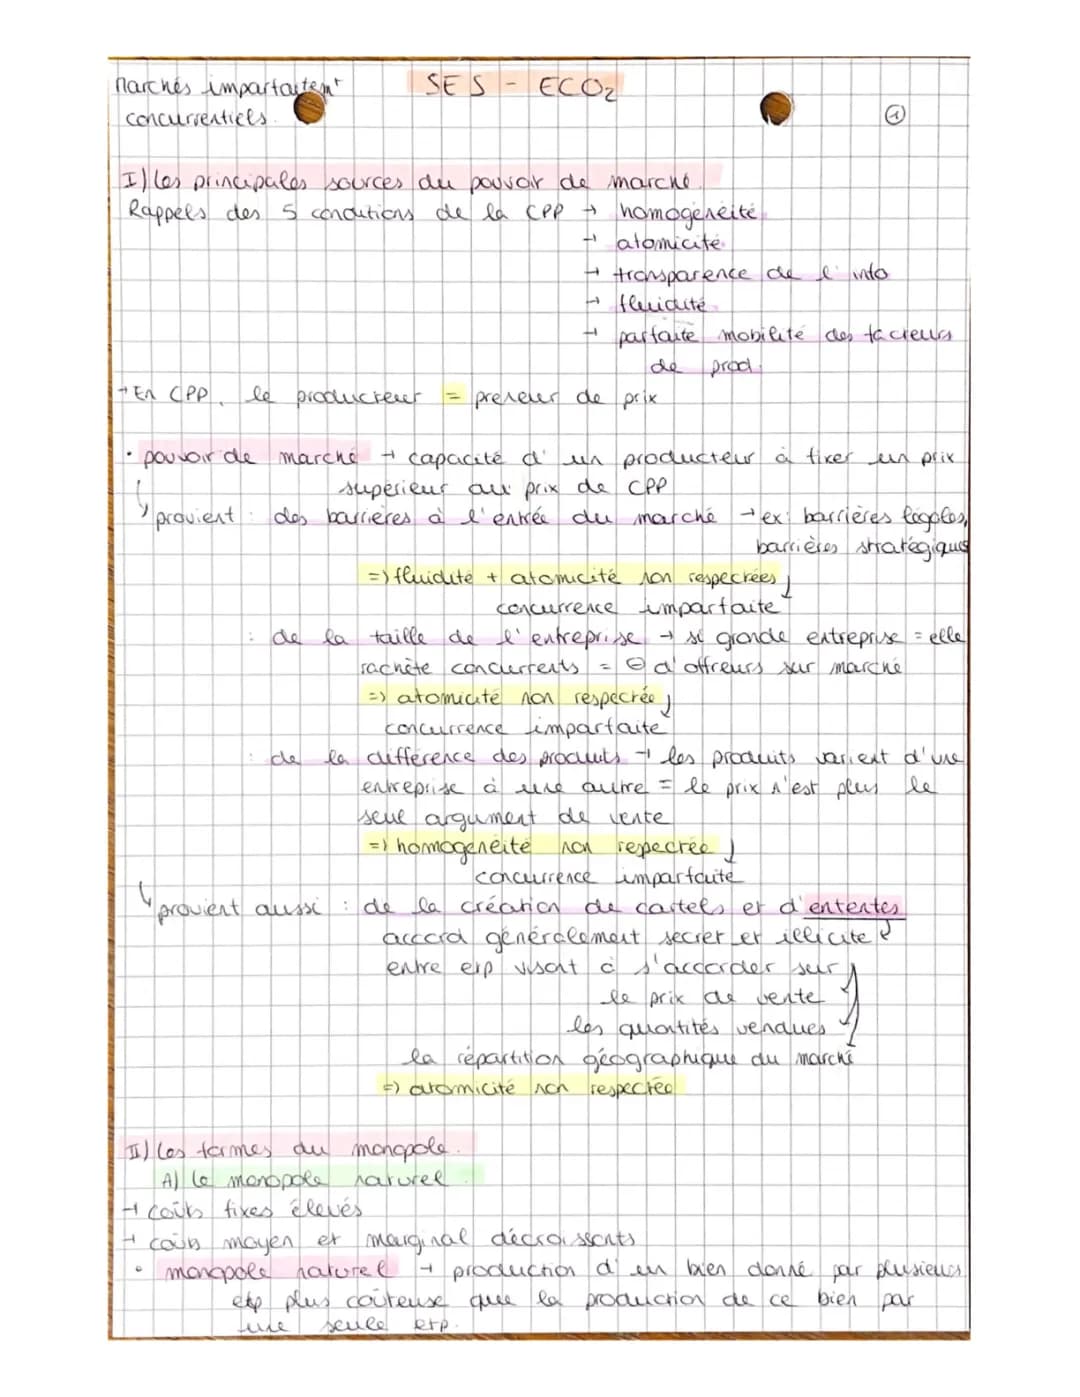 Marchés imparfaitemt
SES - ECO2
concurrentiels.
1
I) Les principales sources du pouvoir de marché.
Rappels des 5 conditions de la CPP → homogénéité
→ atomicité
→ transparence de l'info
→ fluidité
→ parfaite mobilité des facteurs
de prod.
→ En CPP, le producteur = preneur de prix
• pouvoir de marché → capacité d'un producteur à fixer un prix
supérieur au prix de CPP
provient : des barrières à l'entrée du marché → ex: barrières légales,
barrières stratégiques
=> fluidité + atomicité non respectées
concurrence imparfaite
: de la taille de l'entreprise → si grande entreprise = elle
rachète concurrents = ⊖ d'offreurs sur marché
=> atomicité non respectée
concurrence imparfaite
: de la différence des produits → les produits varient d'une
entreprise à une autre = le prix n'est plus le
seul argument de vente
=> homogénéité non repectrée
concurrence imparfaite
provient aussi : de la création de cartels et d'ententes
accord généralement secret et illicite
entre etp visant à s'accorder sur
le prix de vente
les quantités vendues
la répartition géographique du marché
=> atomicité non respectée
II) Les formes du monopole.
A) Le monopole naturel.
→ coûts fixes élevés
→ coûts moyen et marginal décroissants
• monopole naturel → production d'un bien donné par plusieurs
etp plus coûteuse que la production de ce bien par
une seule etp.